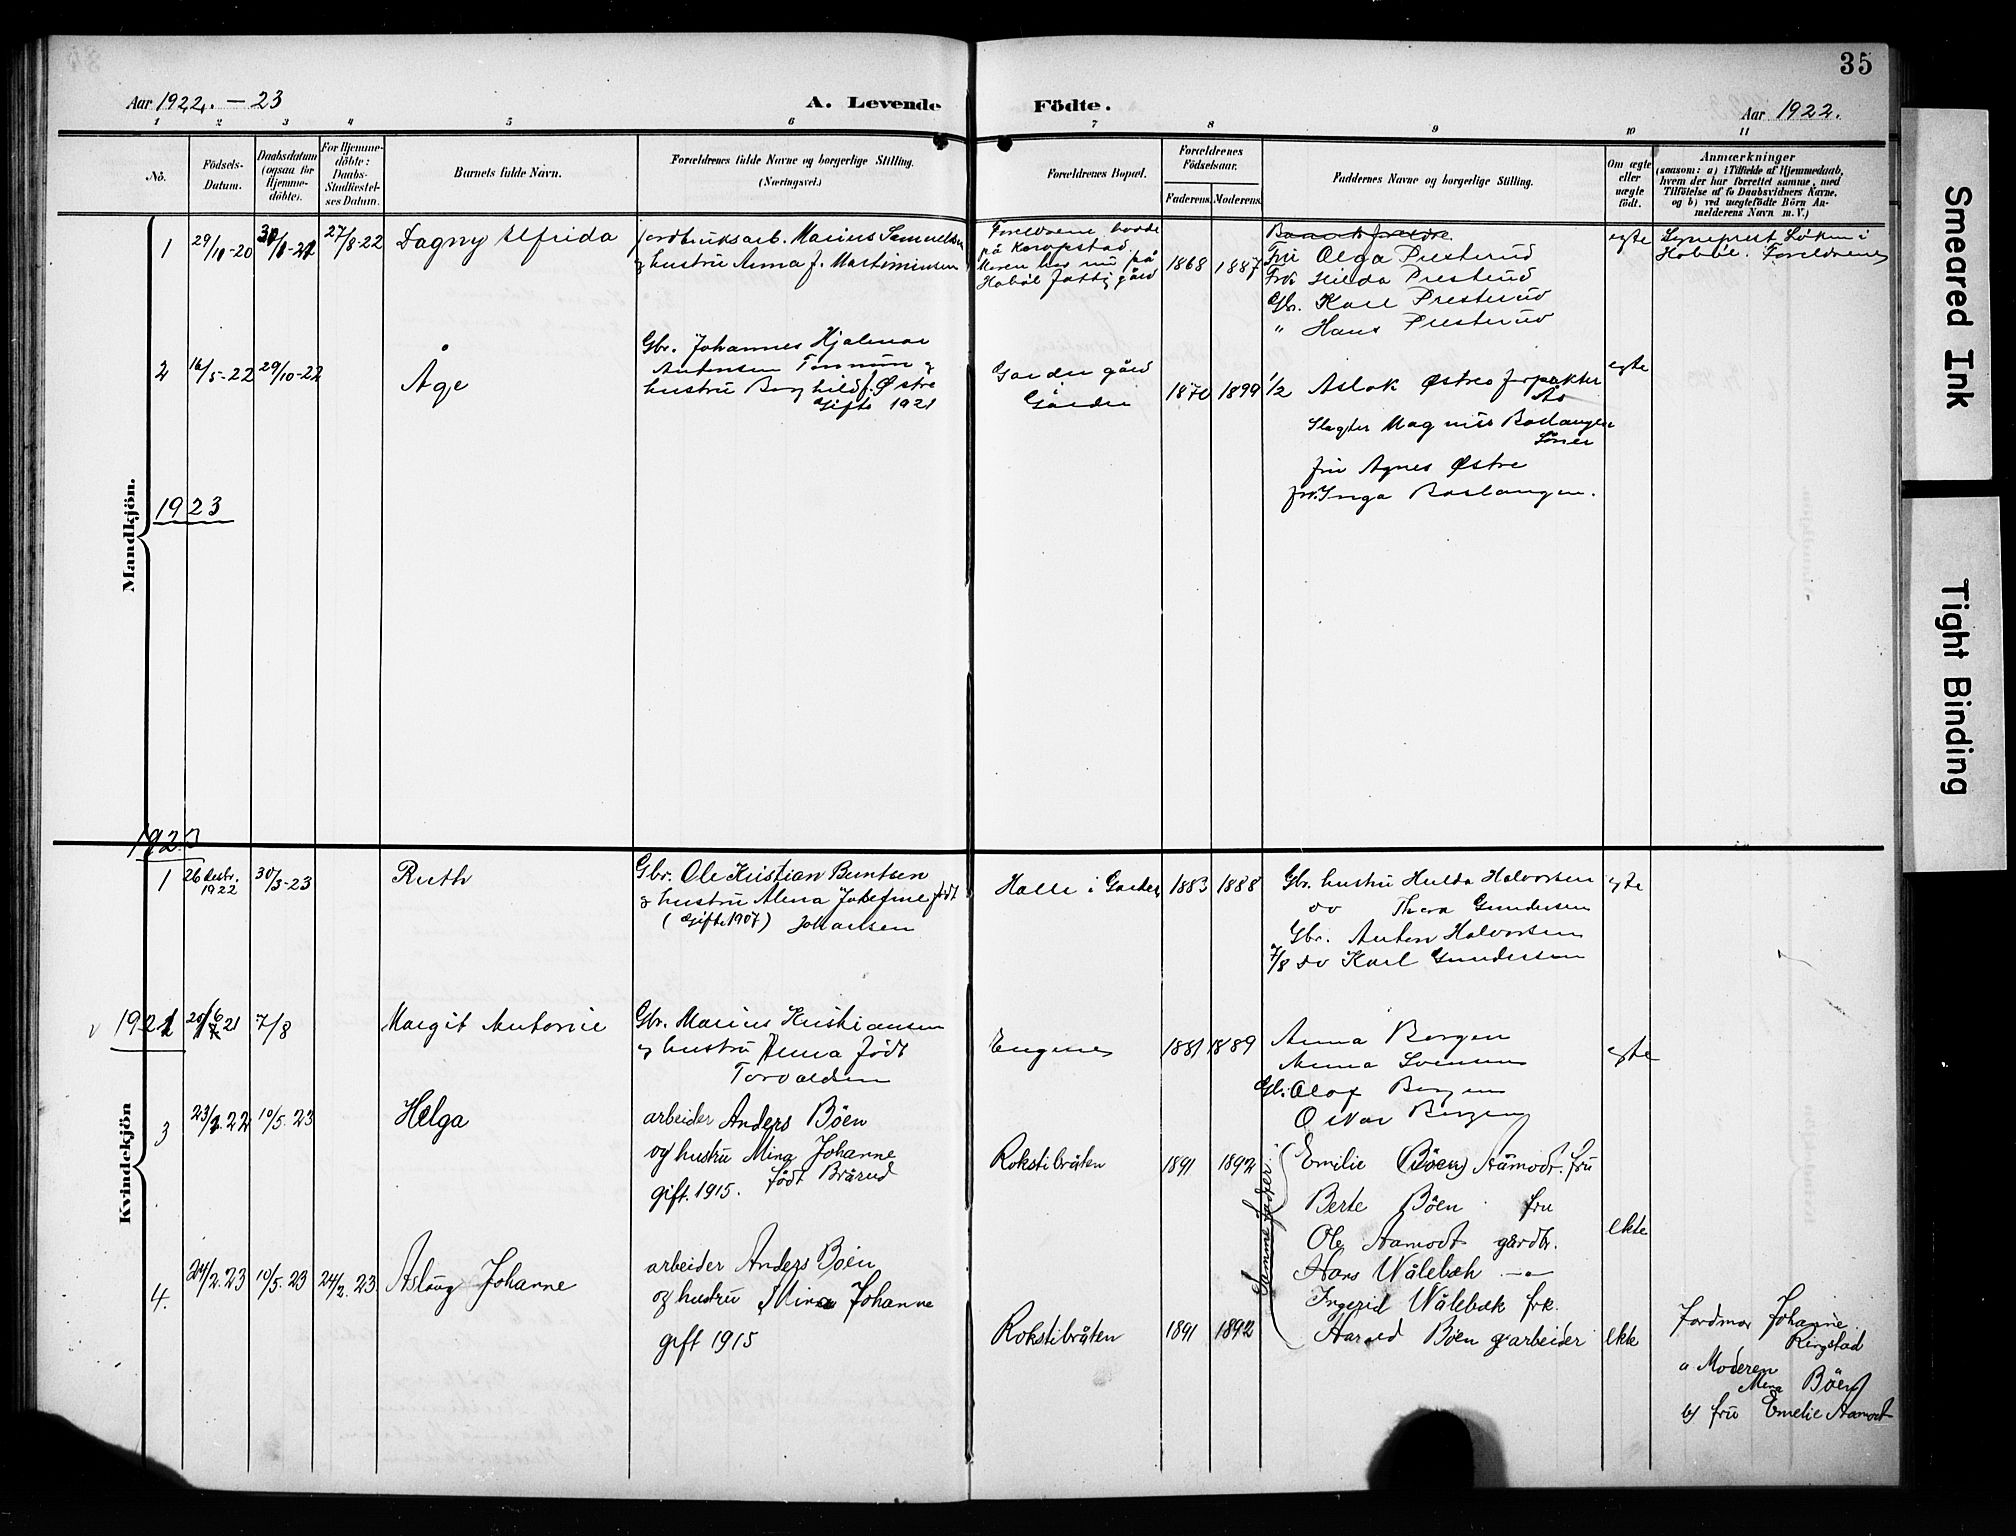 35
Aar 1922. – 23
A. Levende Födte.
Aar 1922.
1 2 3 4 5 6 7 8 9 10 11
No.
Födsels-Datum.
Daabsdatum (ogsaa for Hjemme-döbte).
For Hjemme-döbte: Daabs-Stadfæstel-ses Datum.
Barnets fulde Navn.
Forældrenes fulde Navne og borgerlige Stilling.
(Næringsvei.)
Forældrenes Bopæl.
Forældrenes Födselsaar.
Faderens. Moderens.
Faddernes Navne og borgerlige Stilling.
Om ægte eller uægte födt.
Anmærkninger
(saasom: a) i Tilfælde af Hjemmedaab,
hvem der har forrettet samme, med
Tilföielse af to Daabsvidners Navne,
og b) ved uægtefödte Börn An-
melderens Navn m. V.)
Mandkjön.
1 29/11-20 27/8-22 Dagny Alfrida
jordbruksarb. Marius Samuelsen
og hustru Anna f. Martiniusen
Foreldrene bodde
på Karopstad.
Moren har nu på
Hobøl fattiggård
1868 1887
Barnets foreldre
Fru Olga Presterud
Frk. Hilda Presterud
Gbr. Karl Presterud
" Hans Presterud
egte
Sogneprest Løken i
Hobøl. Foreldrene
2 16/5-22 29/10-22 Åge
Gbr. Johannes Hjalmar
Antonsen
hustru Borghild f. Østre
Gifte 1921
Garder gård
Garder
1870 1899
1/2 Aslak Østre forpakter
Ås
Slagter Magnus Baslangen
Søner
fru Agnes Østre
frk. Inga Baslangen.
egte
1923
1923
Kvindekjön
1 26 desbr. 1922 30/3-23 Ruth
Gbr. Ole Kristian Berntsen
og hustru Alma Josefine født
(Gifte 1907) Johansen
Halle i Garder
1883 1888
Gbr. hustru Hulda Halvorsen
do Thora Gundersen
Gbr. Anton Halvorsen
do Karl Gundersen
egte
7/8
1921 7/8 Margit Antonie
Gbr. Marius Kristiansen
og hustru Anna født
Torvaldsen
Engenes
1881 1889
Anna Borgen
Anna Svensen
Gbr. Olaf Borgen
Oskar Borgen
egte
3 23/2.22 10/5.23 Helga
arbeider Anders Böen
og hustru Mina Johanne
gift. 1915. født Brårud
Rokstibråten
1891 1892
Samme faddere
Emilie (Böen) Aamodt. fru
Berte Böen fru
Ole Aamodt gårdbr.
Hans Wålebæk –"–
Ingerid Wålebæk frk.
Harald Böen garbeider
ekte
4. 24/2.23 10/5.23 24/2.23 Aslaug Johanne
arbeider Anders Böen
og hustru Mina Johanne
gift 1915
Rokstibråten
1891 1892
ekte
Jordmor Johanne
Ringstad
a Moderen
Mina Böen
b) fru Emelie Aamodt
Smeared Ink
Tight Binding